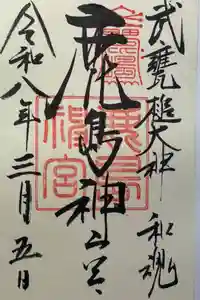 武甕槌大神 和魂
鹿島神宮
鹿島
神宮
令和八年三月五日